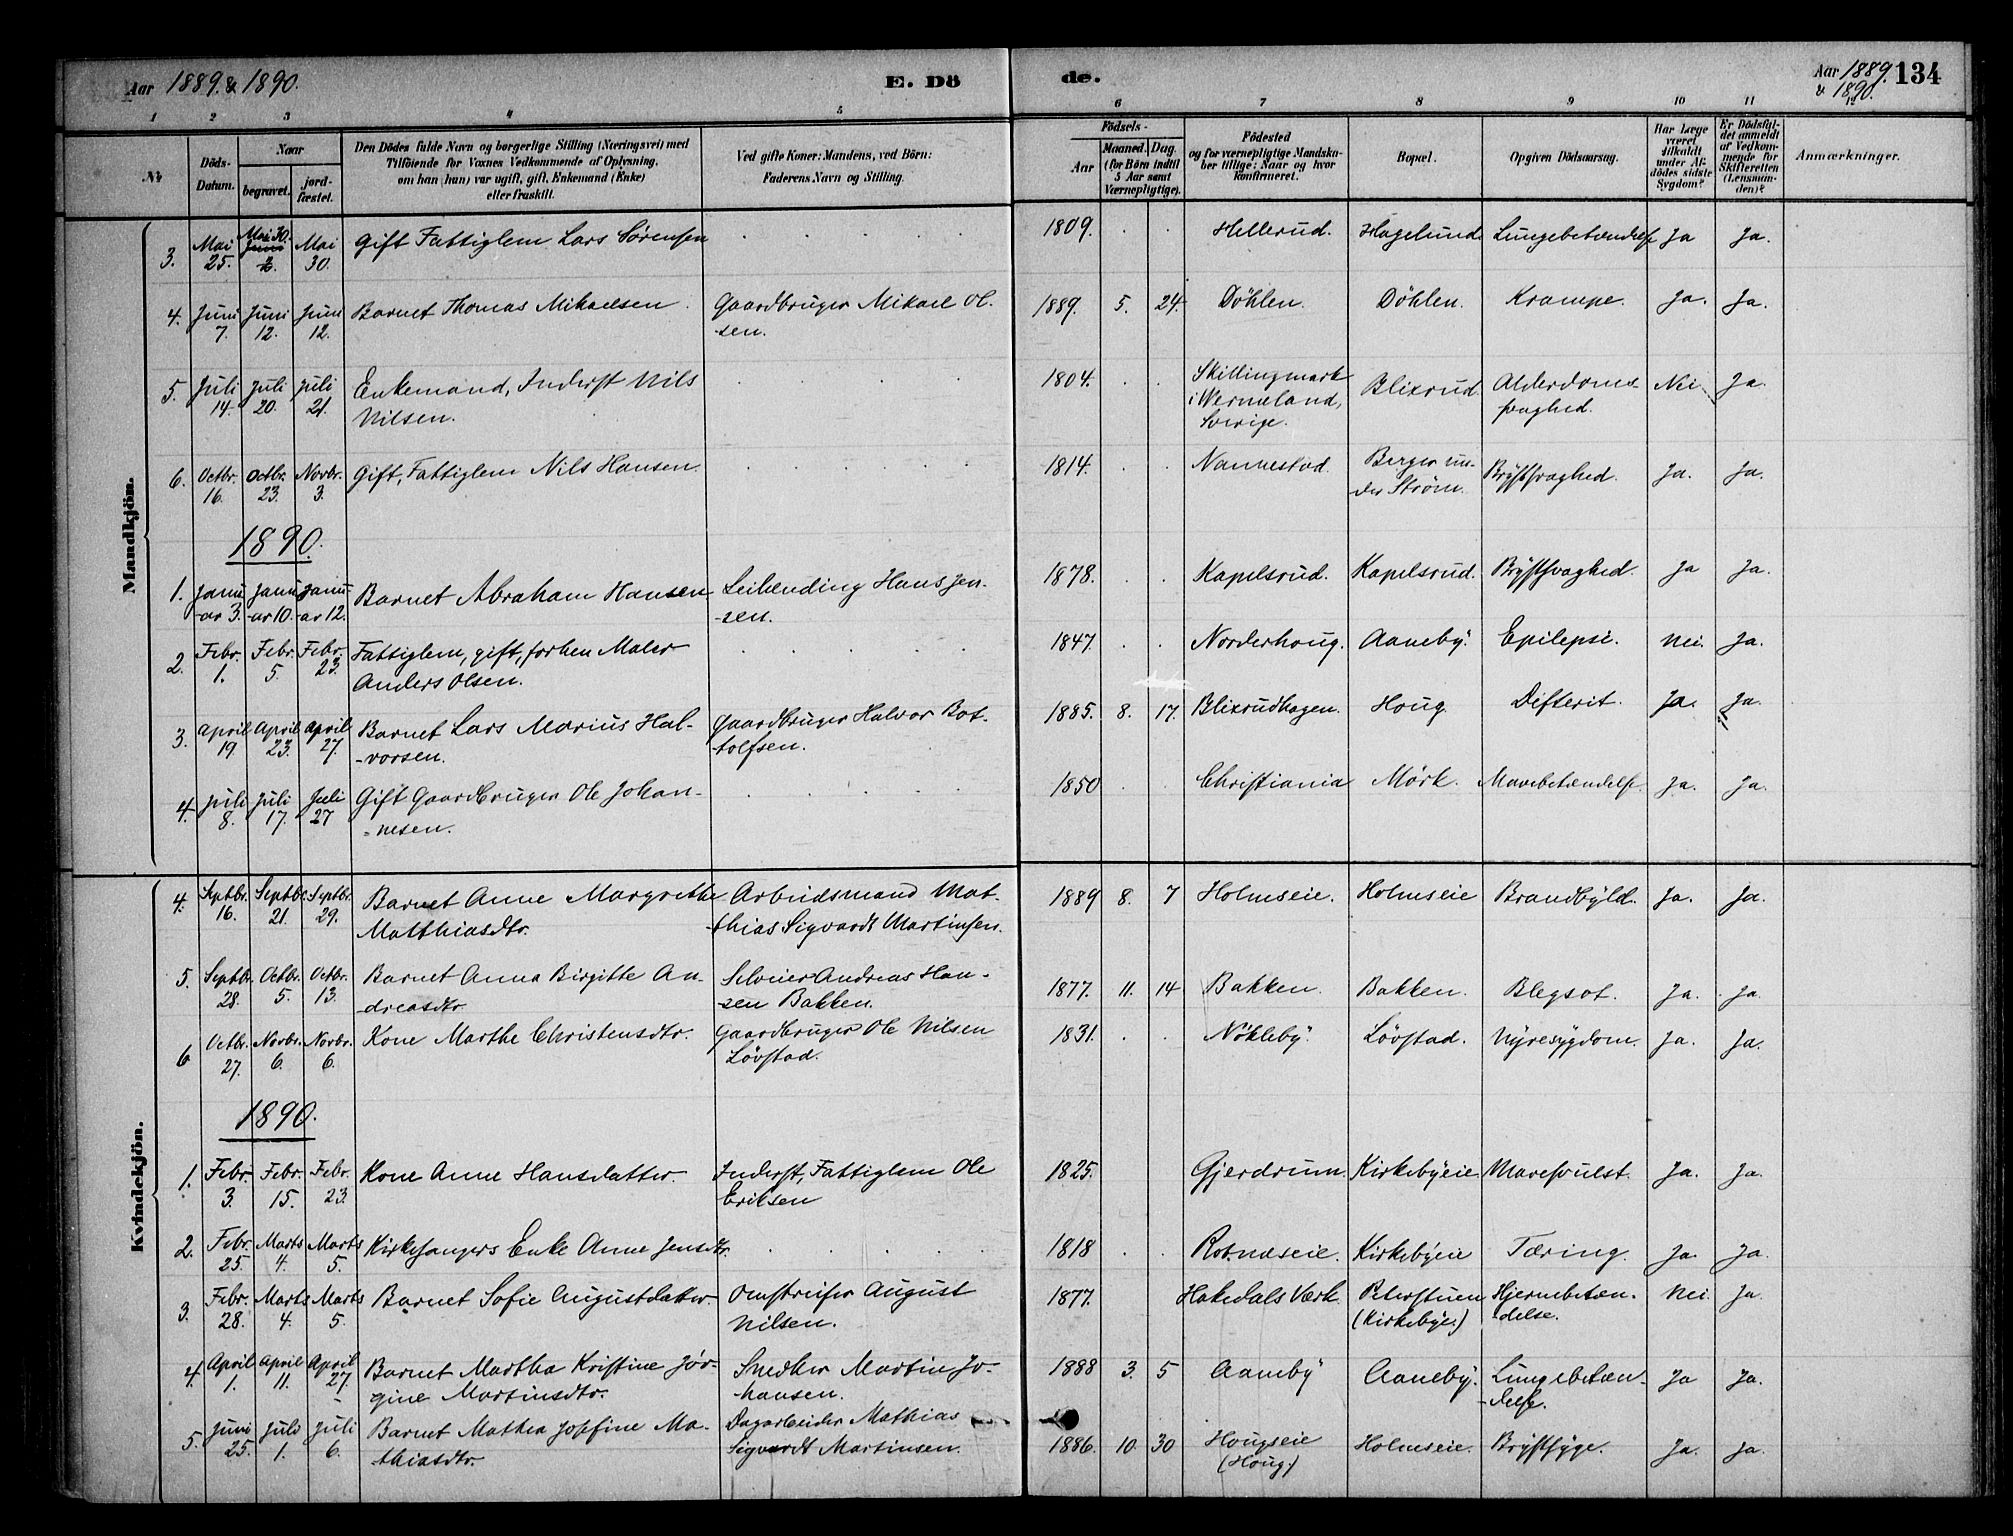 Aar 1889. & 1890.
E. Dö
de.
Aar 1889. & 1890.
134
1 2 3 4 5 6 7 8 9 10 11 12
No
Döds-Datum.
Naar
begravet.
jord-fæstet.
Den Dödes fulde Navn og borgerlige Stilling (Næringsvei) med
Tilföiende for Voxnes Vedkommende af Oplysning,
om han (hun) var ugift, gift, Enkemand (Enke)
eller fraskilt.
Ved gifte Koner: Mandens, ved Börn:
Faderens Navn og Stilling.
Födsels-
Aar
Maaned. Dag.
(for Börn indtil
5 Aar samt
Værnepligtige).
Födested
og for værnepligtige Mandskaber tillige: Naar og hvor
konfirmeret.
Bopæl.
Opgiven Dödsaarsag.
Har Læge
været
tilkaldt
under Afdödes sidste
Sygdom?
Er Dödsfaldet anmeldt
af Vedkommende for
Skifteretten
(Lensmanden)?
Anmærkninger.
Mandkjön.
3. Mai 25. Mai 30. Juni 2. Mai 30. Gift Fattiglem Lars Sörensen 1809. Hellerud. Hagelund Lungebetændelse Ja Ja.
4. Juni 7. Juni 12. Juni 12. Barnet Thomas Mikaelsen Gaardbruger Mikael Ol-
sen. 1889. 5. 24. Döhlen. Döhlen. Krampe. Ja. Ja.
5. Juli 14. Juli 20. Juli 21. Enkemand, Inderst Nils
Nilsen. 1804. Skillingmark
i Wermeland,
Sverige. Blixrud Alderdoms-
svaghed. Nei Ja
6. Octbr. 16. Octbr. 23. Novbr. 3. Gift, Fattiglem Nils Hansen. 1814. Nannestad. Berger un-
der Ström. Brystsvaghed. Ja. Ja.
1890.
1. Janu-
ar 3. Janu-
ar 10. Janu-
ar 12. Barnet Abraham Hansen Leilending Hans Jen-
sen. 1878. Kapelsrud. Kapelsrud. Brystsvaghed. Ja Ja.
2. Febr. 1. Febr. 5. Febr. 23. Fattiglem, gift, forhen Maler
Anders Olsen. 1847. Norderhoug. Aaneby. Epilepsi. Nei. Ja.
3. April 19. April 23. April 27. Barnet Lars Marius Hal-
vorsen. Gaardbruger Halvor Bot-
tolfsen. 1885. 8. 17. Blixrudhagen. Houg Difterit. Ja. Ja.
4. Juli 8. Juli 17. Juli 27 Gift Gaardbruger Ole Johan-
nesen. 1850 Christiania Mörk. Mavebetændelse. Ja. Ja.
Kvindekjön.
4. Septbr. 16. Septbr. 21. Septbr. 29. Barnet Anne Margrethe
Matthiasdtr. Arbeidsmand Mat-
thias Sigvardt Martinsen. 1889 8. 7 Holmseie. Holmseie Brandbyld. Ja. Ja.
5. Septbr. 28. Octbr. 5. Octbr. 13. Barnet Anna Birgitte An-
dreasdtr. Selveier Andreas Han-
sen Bakken. 1877. 11. 14 Bakken. Bakken. Blegsot. Ja. Ja.
6 Octbr. 27. Novbr. 6. Novbr. 6. Kone Marthe Christensdtr. Gaardbruger Ole Nilsen
Lövstad. 1831. Nökleby. Lövstad. Nyresygdom. Ja. Ja.
1890.
1. Febr. 3. Febr. 15. Febr. 23. Kone Anne Hansdatter. Inderst, Fattiglem Ole
Eriksen 1825. Gjerdrum. Kirkebyeie Mavesvulst. Ja. Ja.
2. Febr. 25. Marts 4. Marts 5. Kirkesangers Enke Anne Jensdtr. 1818 Rotnæseie. Kirkebyeie Tæring. Ja. Ja.
3. Febr. 28. Marts 4. Marts 5. Barnet Sofie Augustdatter. Omstreifer August
Nilsen. 1877. Hakedals Værk. Peterstuen
(Kirkebye.) Hjernebetæn-
delse. Nei. Ja.
4. April 1. April 11. April 27. Barnet Martha Kristine Jör-
gine Martinsdtr. Snedker Martin Jo-
hansen. 1888 3. 5 Aaneby Aaneby. Lungebetæn-
delse. Ja Ja.
5. Juni 25. Juli 1. Juli 6. Barnet Mathea Josefine Ma-
thiasdtr. Dagarbeider Mathias
Sigvardt Martinsen. 1886. 10. 30 Hougseie
(Houg.) Holmseie. Brystsyge. Ja. Ja.